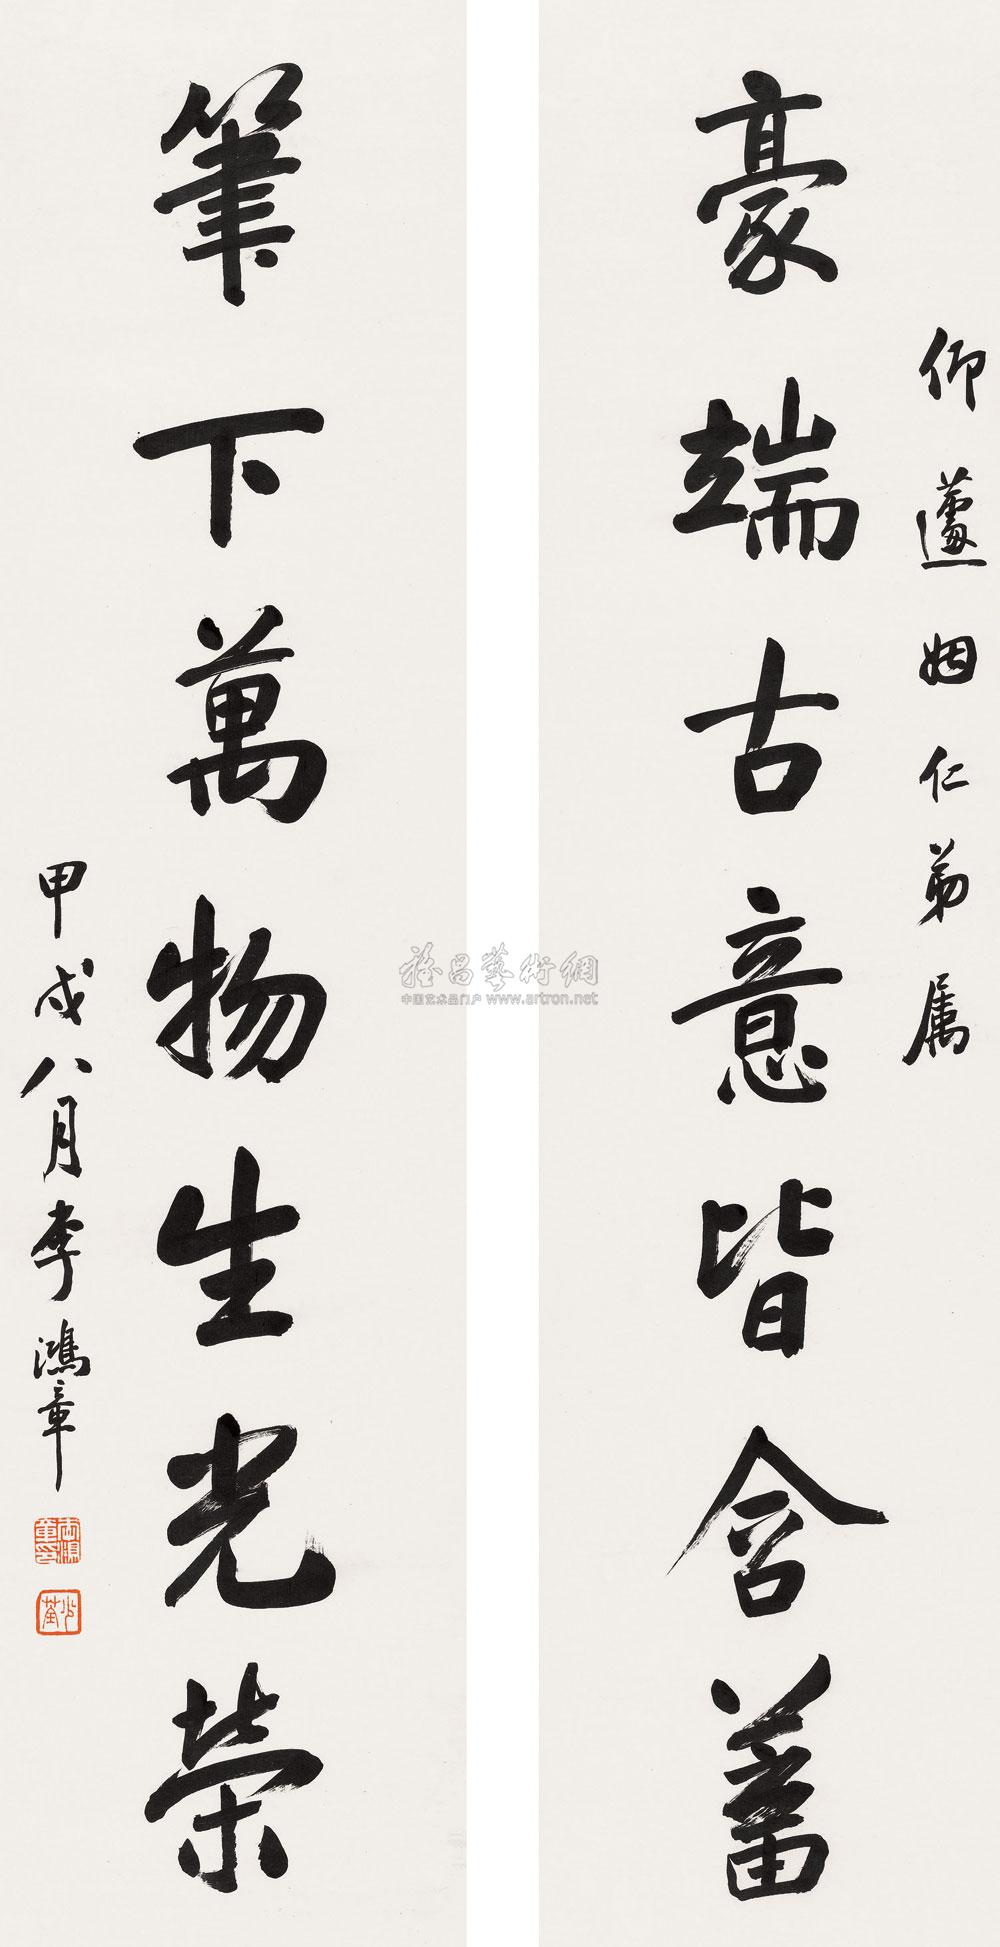 仰蘧姻仁弟属
豪端古意皆含蓄
筆下萬物生光榮
甲戌八月李鴻章
雅昌藝術網
中国艺术品门户 www.artron.net
少荃